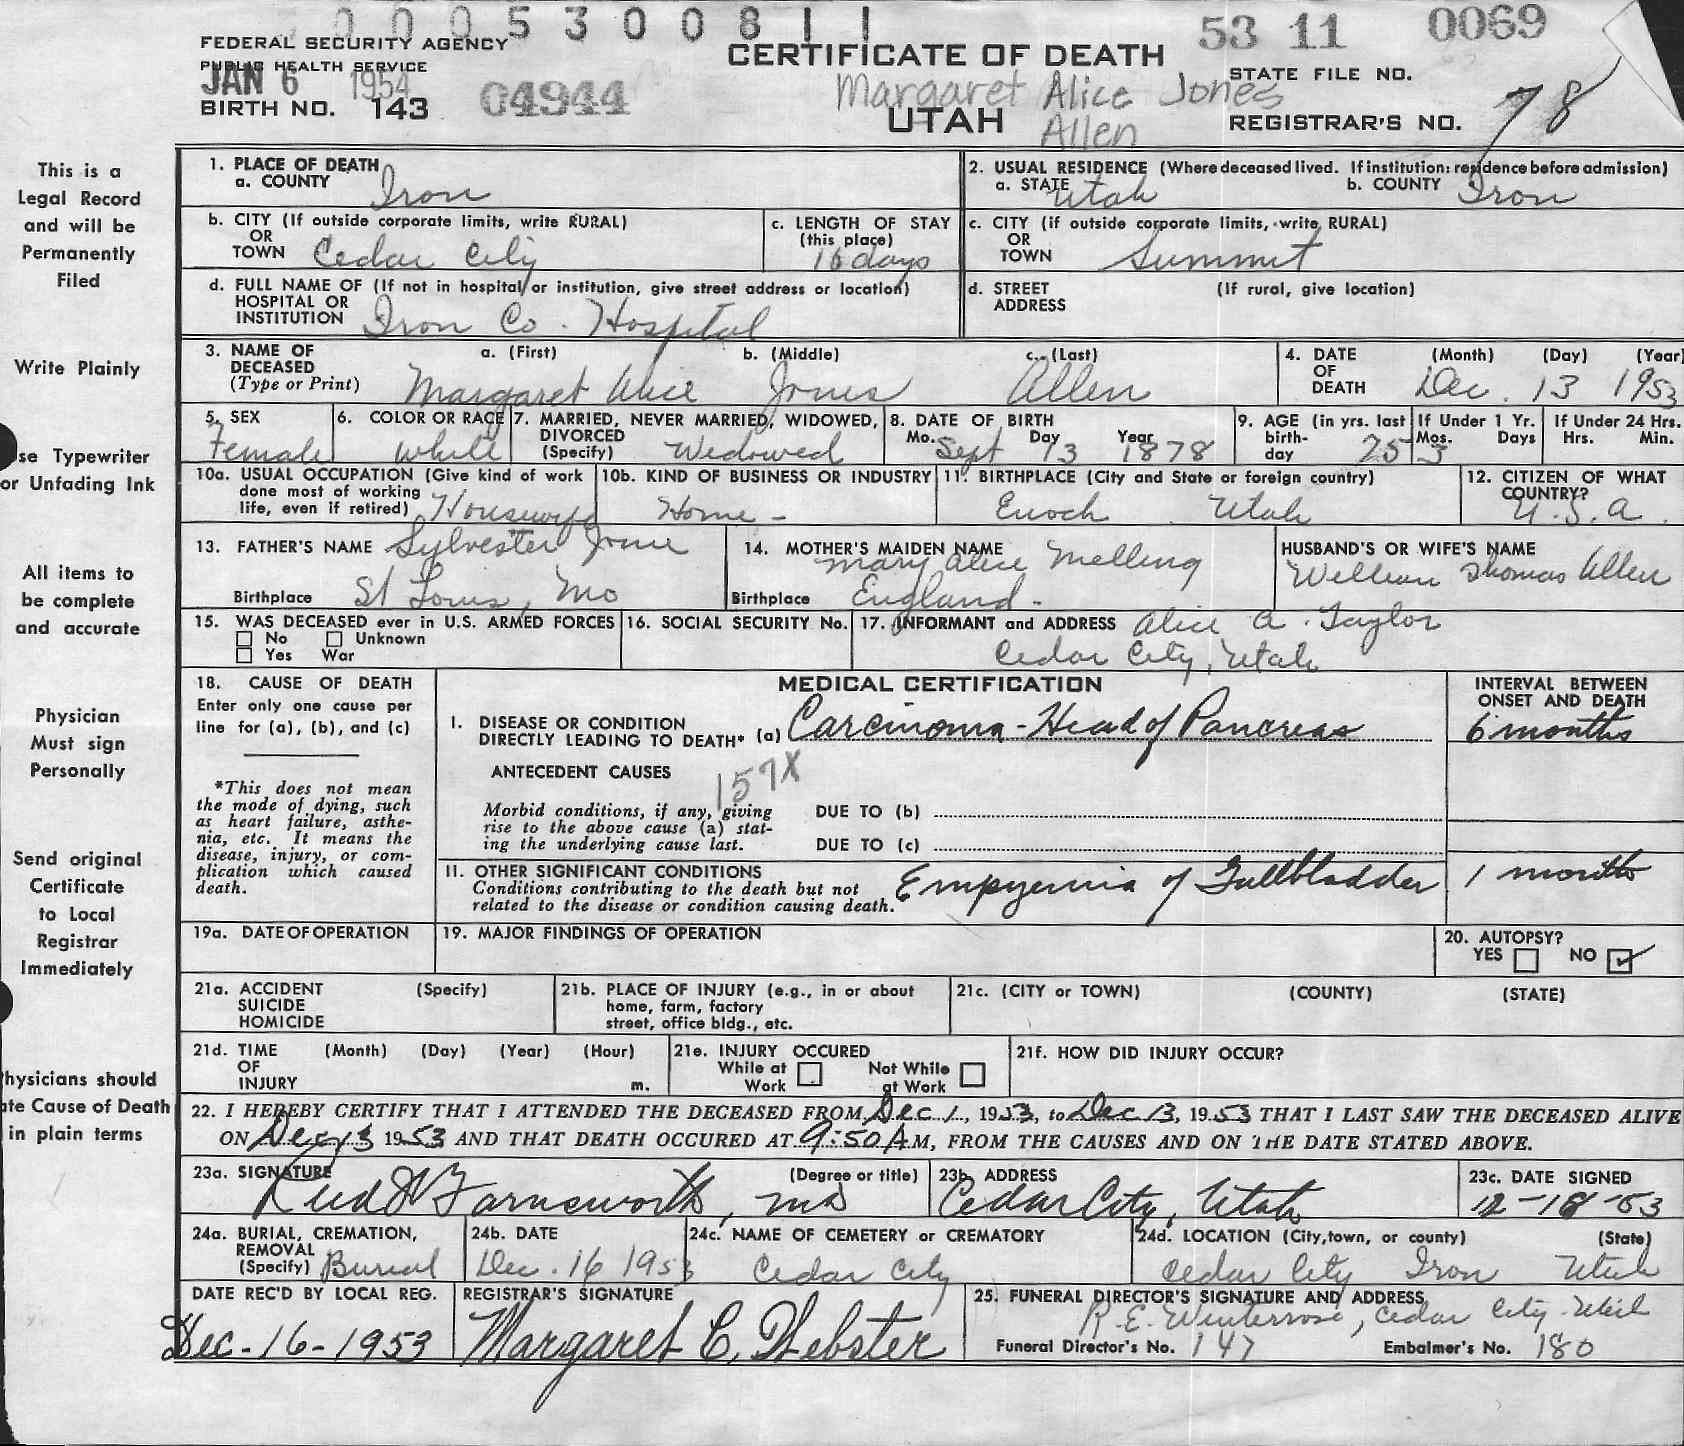 0 0 0 5 3 0 0 8 1 1
53 11 0069
FEDERAL SECURITY AGENCY
PUBLIC HEALTH SERVICE
JAN 6 1954
BIRTH NO. 143 04944
CERTIFICATE OF DEATH
Margaret Alice Jones
UTAH Allen
STATE FILE NO.
REGISTRAR'S NO. 78
This is a
Legal Record
and will be
Permanently
Filed
Write Plainly
se Typewriter
or Unfading Ink
All items to
be complete
and accurate
Physician
Must sign
Personally
Send original
Certificate
to Local
Registrar
Immediately
hysicians should
ate Cause of Death
in plain terms
1. PLACE OF DEATH
a. COUNTY Iron
2. USUAL RESIDENCE (Where deceased lived. If institution: residence before admission)
a. STATE Utah b. COUNTY Iron
b. CITY (If outside corporate limits, write RURAL)
OR
TOWN Cedar City
c. LENGTH OF STAY
(this place)
16 days
c. CITY (if outside corporate limits, write RURAL)
OR
TOWN Summit
d. FULL NAME OF (If not in hospital or institution, give street address or location)
HOSPITAL OR
INSTITUTION Iron Co. Hospital
d. STREET (If rural, give location)
ADDRESS
3. NAME OF a. (First) b. (Middle) c. (Last)
DECEASED
(Type or Print) Margaret Alice Jones Allen
4. DATE (Month) (Day) (Year)
OF
DEATH Dec. 13 1953
5. SEX
Female
6. COLOR OR RACE
White
7. MARRIED, NEVER MARRIED, WIDOWED,
DIVORCED
(Specify) Widowed
8. DATE OF BIRTH
Mo. Sept Day 13 Year 1878
9. AGE (in yrs. last
birth-
day 75
If Under 1 Yr.
Mos. 3 Days
If Under 24 Hrs.
Hrs. Min.
10a. USUAL OCCUPATION (Give kind of work
done most of working
life, even if retired) Housewife
10b. KIND OF BUSINESS OR INDUSTRY
Home -
11. BIRTHPLACE (City and State or foreign country)
Enoch Utah
12. CITIZEN OF WHAT
COUNTRY?
U.S.A.
13. FATHER'S NAME Sylvester Jones
Birthplace St Louis, Mo
14. MOTHER'S MAIDEN NAME
Mary Alice Melling
Birthplace England -
HUSBAND'S OR WIFE'S NAME
William Thomas Allen
15. WAS DECEASED ever in U.S. ARMED FORCES
No Unknown
Yes War
16. SOCIAL SECURITY No.
17. INFORMANT and ADDRESS Alice A. Taylor
Cedar City, Utah
18. CAUSE OF DEATH
Enter only one cause per
line for (a), (b), and (c)
*This does not mean
the mode of dying, such
as heart failure, asthe-
nia, etc. It means the
disease, injury, or com-
plication which caused
death.
MEDICAL CERTIFICATION
INTERVAL BETWEEN
ONSET AND DEATH
I. DISEASE OR CONDITION
DIRECTLY LEADING TO DEATH* (a) Carcinoma - Head of Pancreas 6 months
ANTECEDENT CAUSES 157X
Morbid conditions, if any, giving
rise to the above cause (a) stat-
ing the underlying cause last.
DUE TO (b)
DUE TO (c)
II. OTHER SIGNIFICANT CONDITIONS
Conditions contributing to the death but not
related to the disease or condition causing death.
Empyemia of Gallbladder 1 month
19a. DATE OF OPERATION
19. MAJOR FINDINGS OF OPERATION
20. AUTOPSY?
YES NO ✓
21a. ACCIDENT (Specify)
SUICIDE
HOMICIDE
21b. PLACE OF INJURY (e.g., in or about
home, farm, factory
street, office bldg., etc.
21c. (CITY or TOWN) (COUNTY) (STATE)
21d. TIME (Month) (Day) (Year) (Hour)
OF
INJURY m.
21e. INJURY OCCURED
While at Not While
Work at Work
21f. HOW DID INJURY OCCUR?
22. I HEREBY CERTIFY THAT I ATTENDED THE DECEASED FROM Dec 1, 1953, to Dec 13, 1953 THAT I LAST SAW THE DECEASED ALIVE
ON Dec 13 1953 AND THAT DEATH OCCURED AT 9:50 A M, FROM THE CAUSES AND ON THE DATE STATED ABOVE.
23a. SIGNATURE (Degree or title)
Farnsworth, MD
23b. ADDRESS
Cedar City, Utah
23c. DATE SIGNED
12-18-53
24a. BURIAL, CREMATION,
REMOVAL
(Specify) Burial
24b. DATE
Dec. 16 1953
24c. NAME OF CEMETERY OR CREMATORY
Cedar City
24d. LOCATION (City,town, or county) (State)
Cedar City Iron Utah
DATE REC'D BY LOCAL REG.
Dec-16-1953
REGISTRAR'S SIGNATURE
Margaret C. Webster
25. FUNERAL DIRECTOR'S SIGNATURE AND ADDRESS
R. E. Winterrose, Cedar City Utah
Funeral Director's No. 147 Embalmer's No. 180